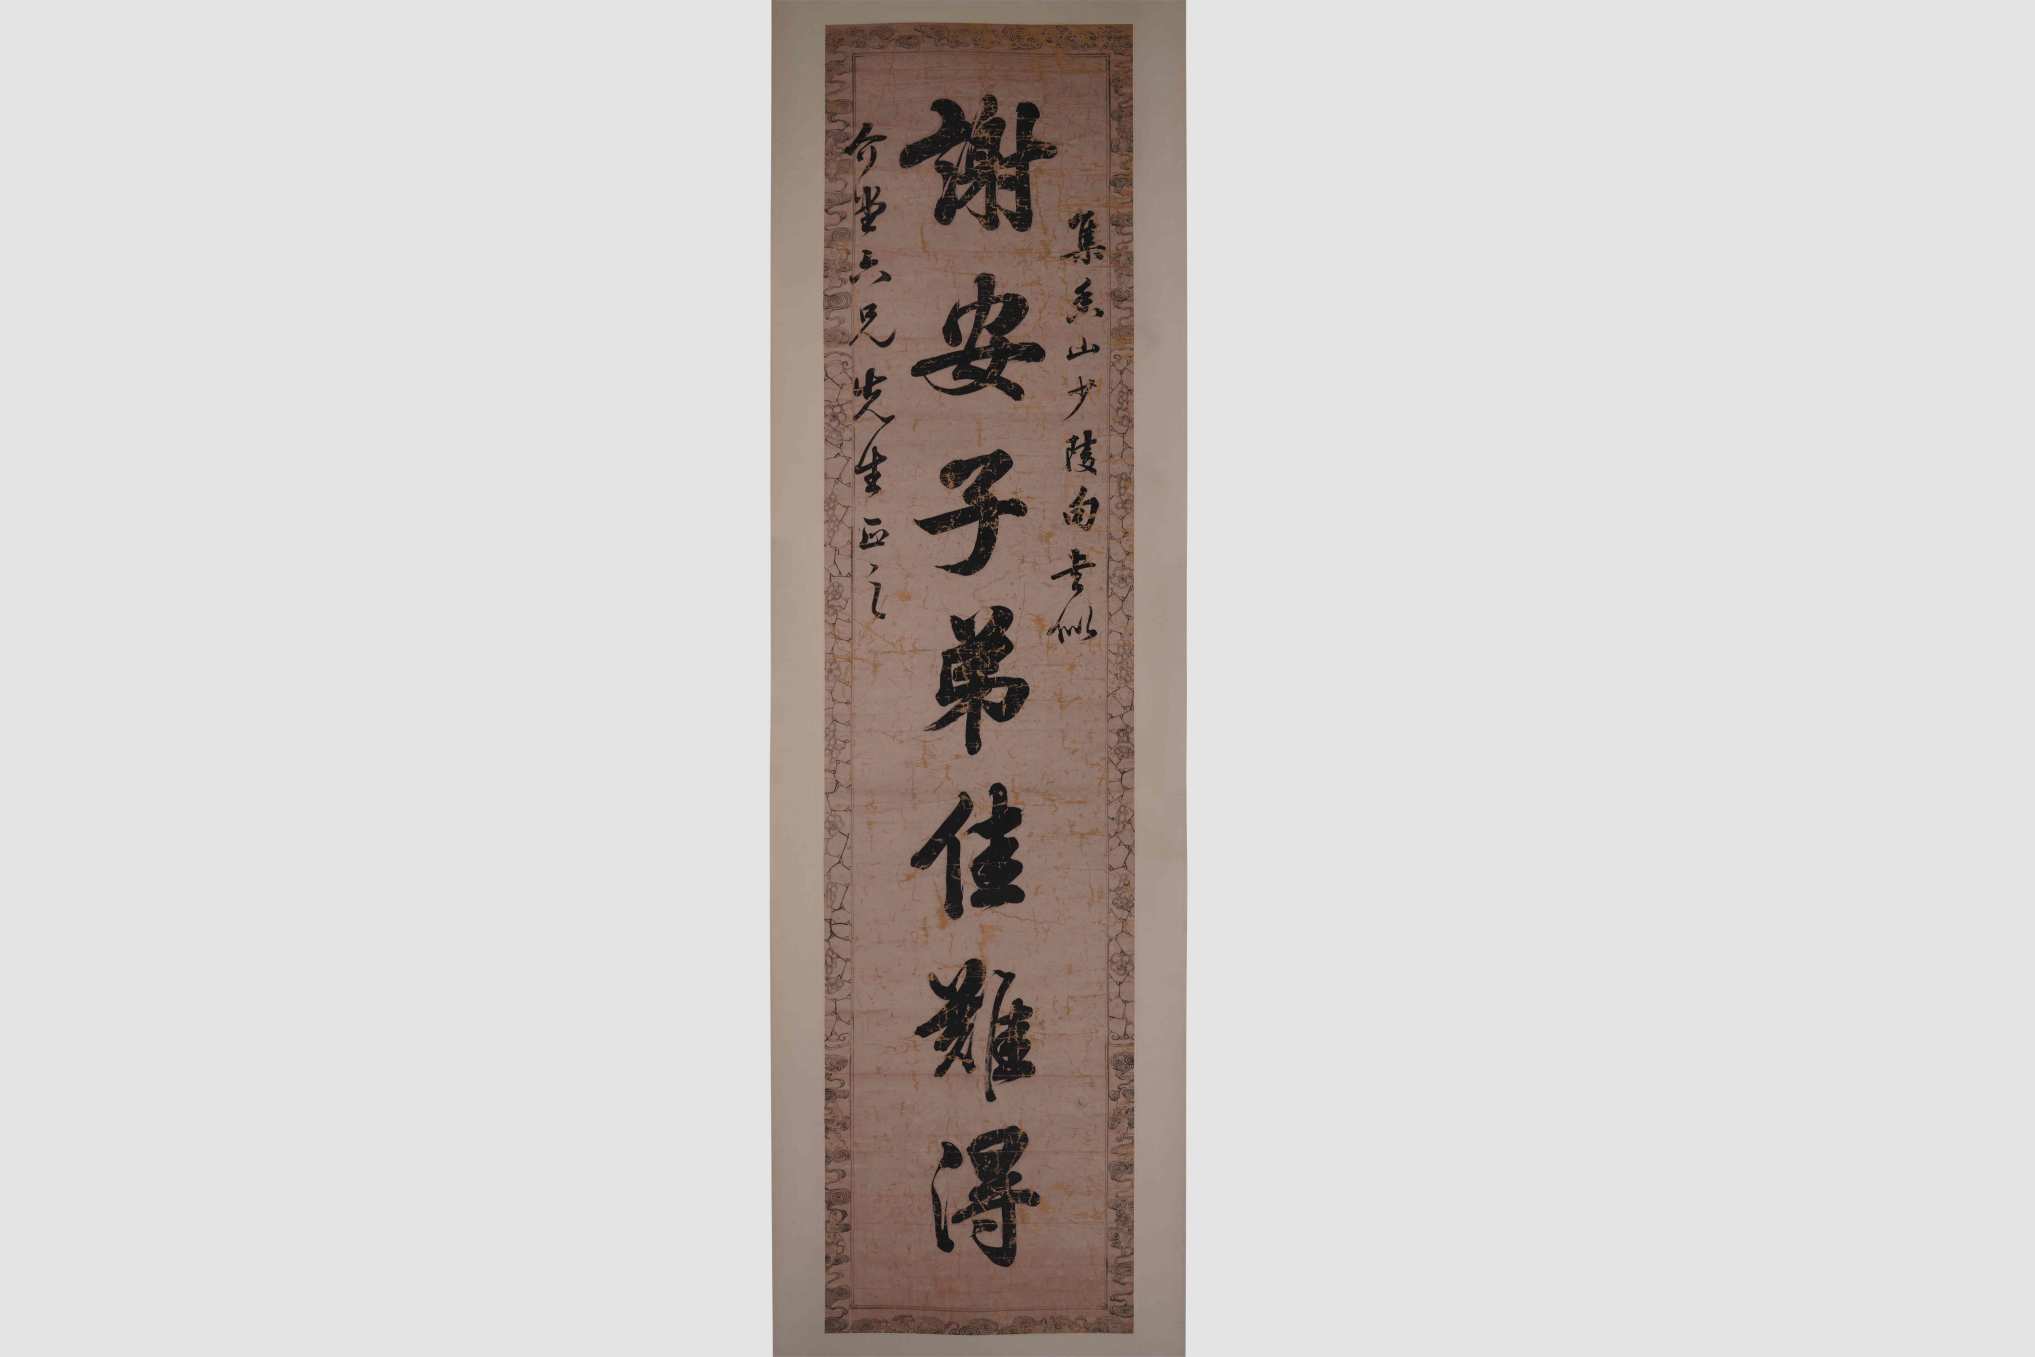 集香山少陵句書似
謝安子弟佳難得
介堂六兄先生正之